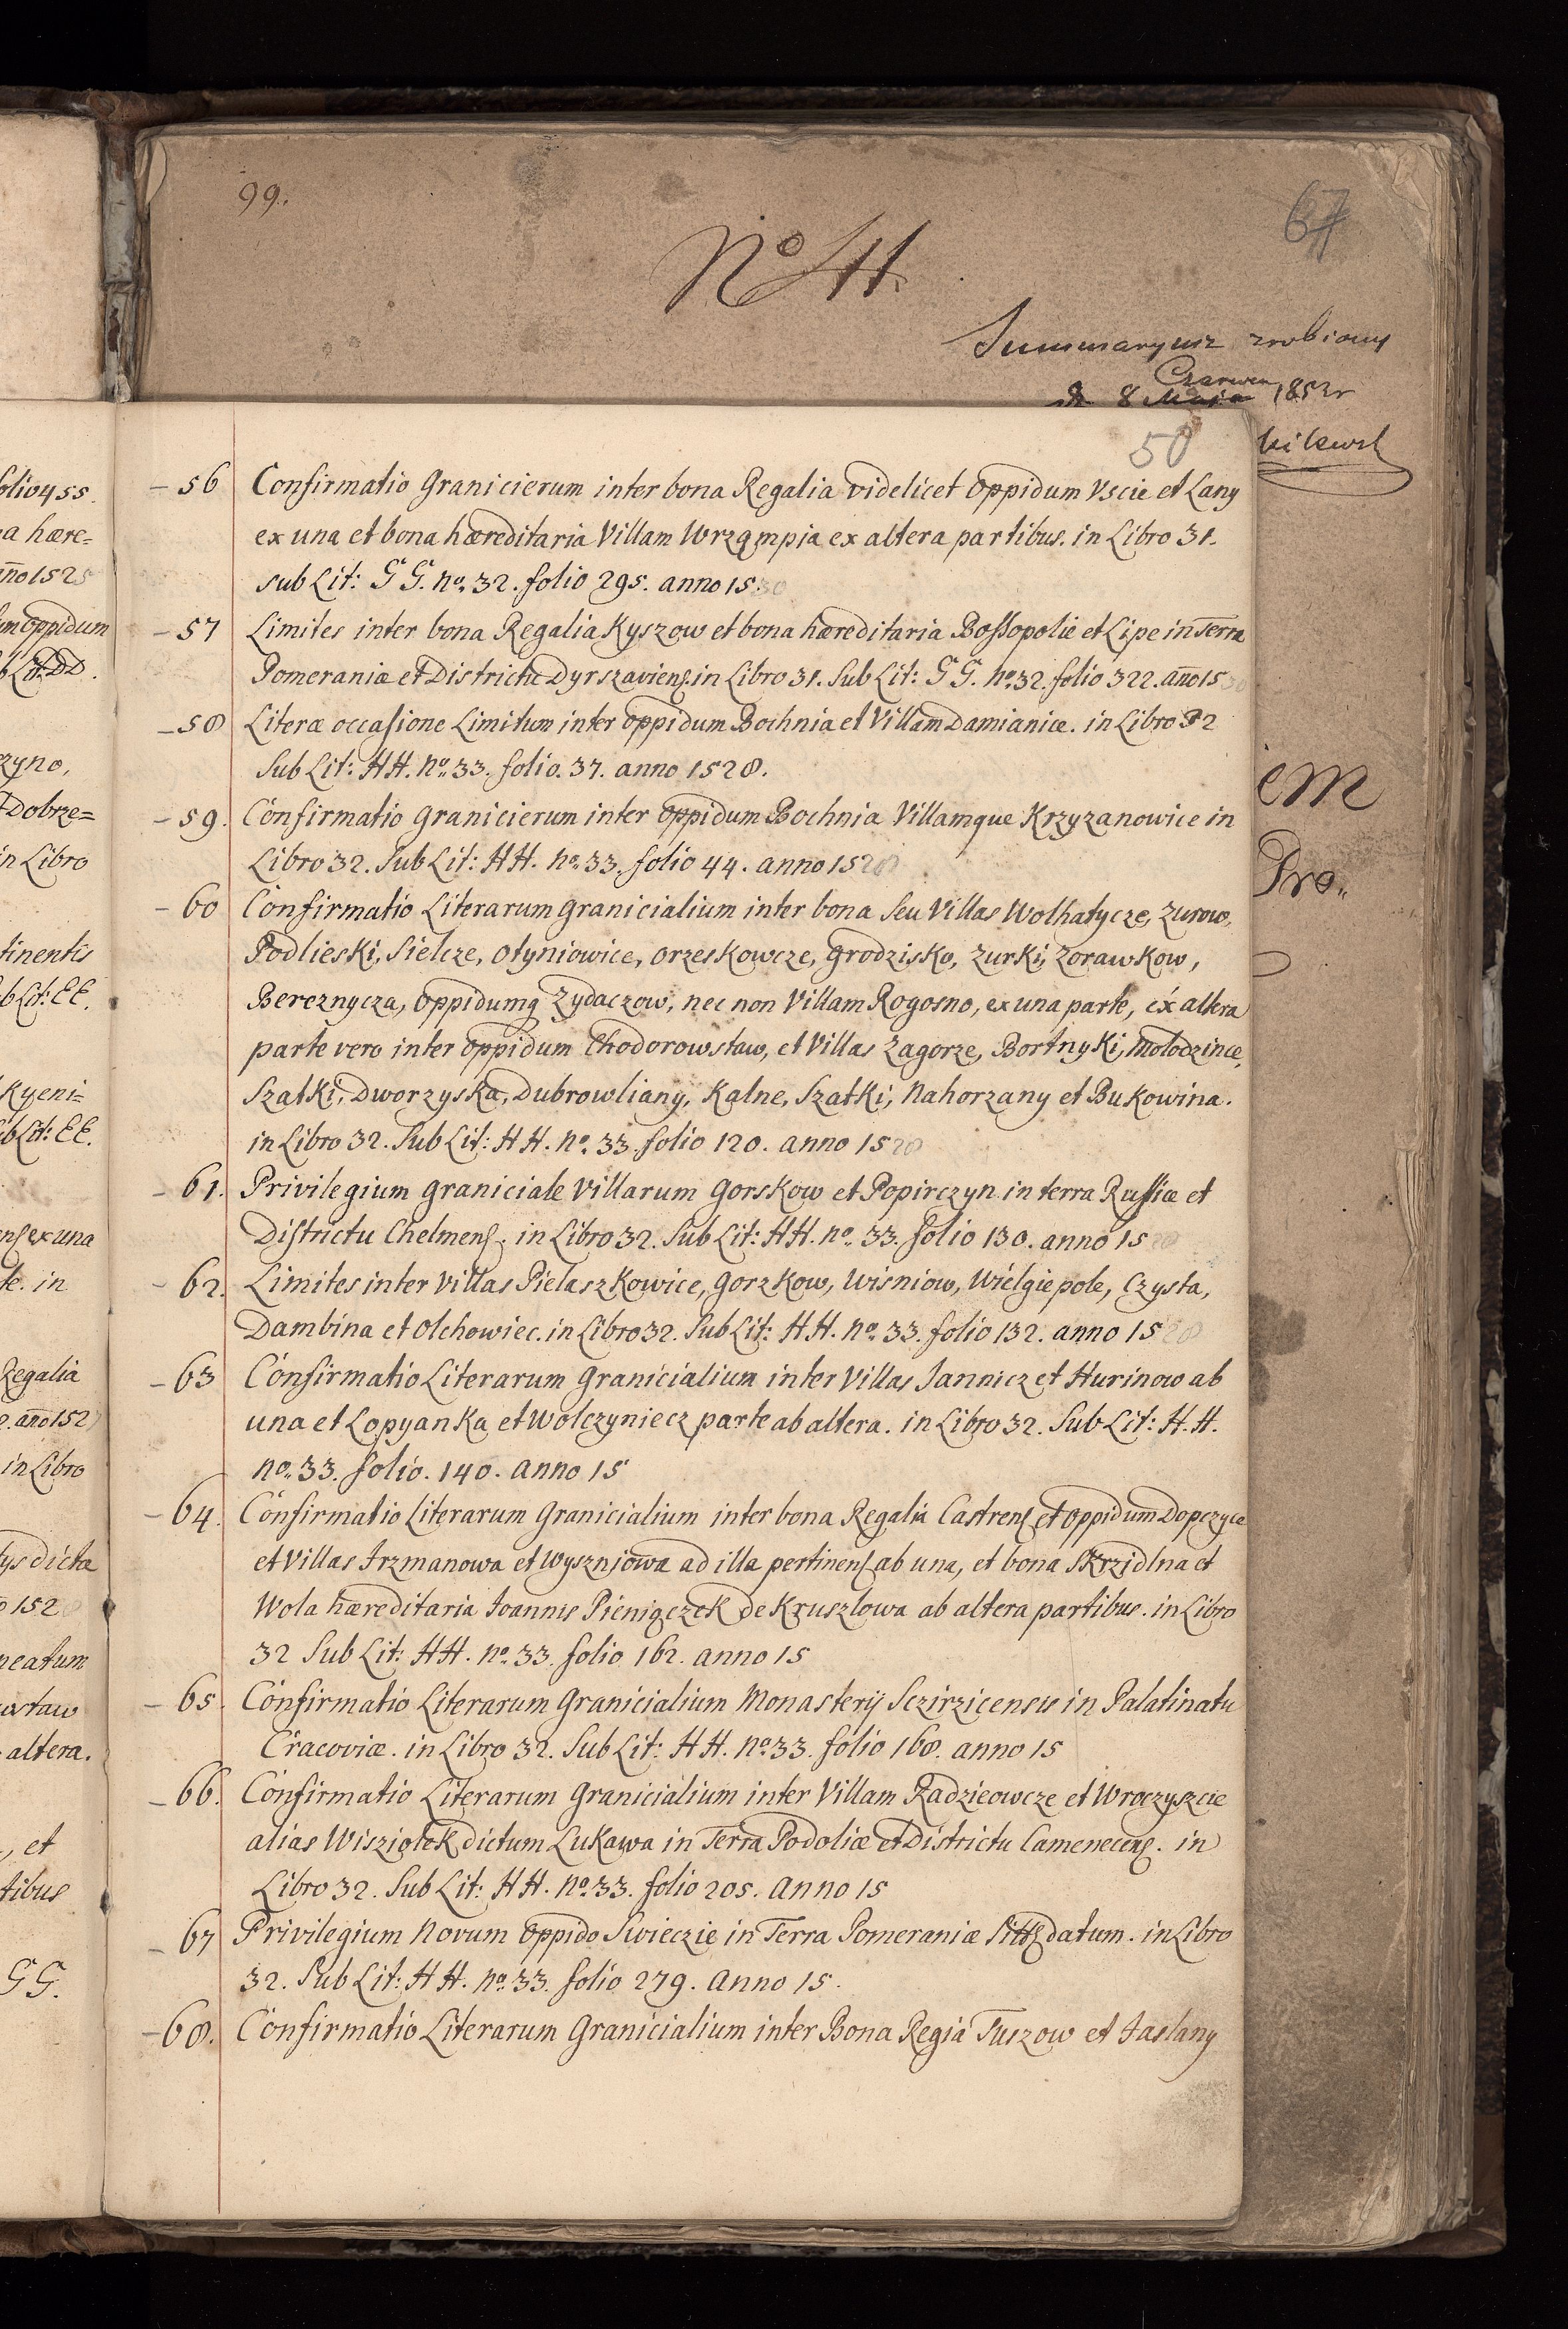 99.
67
No 44.
Summaryusz zrobiony
d 8 Czerwca 1852r
50
56 Confirmatio Granicierum inter bona Regalia videlicet oppidum Vscie et Lany
ex una et bona hæreditaria Villam Wrząmpia ex altera partibus. in Libro 31.
sub Lit: GG. no. 32. folio 295. anno 1530
57 Limites inter bona Regalia Kyszow et bona hæreditaria Bossopolie et Lipe in Terra
Pomeraniæ et Districtu Dyrszaviens. in Libro 31. Sub Lit: GG. no. 32. folio 322. año 1530
58 Literæ occasione Limitum inter oppidum Bochnia et Villam Damianice. in Libro 32
Sub Lit: HH. no. 33. folio. 37. anno 1528.
59. Confirmatio Granicierum inter oppidum Bochnia Villamque Krzyzanowice in
Libro 32. Sub Lit: HH. no. 33. folio 44. anno 1528
60 Confirmatio Literarum Granicialium inter bona Seu Villas Wolhatycze, Zurow,
Podlieski, Sielcze, Otyniowice, Orzeskowcze, Grodzisko, Zurki, Zorawkow,
Bereznycza, oppidumq Zydaczow, nec non Villam Rogosno, ex una parte, ex altera
parte vero inter oppidum Chodorowstaw, et Villas Zagorze, Bortnyki, Molodzince,
Szatki, Dworzyska, Dubrowliany, Kalne, Szatki, Nahorzany et Bukowina.
in Libro 32. Sub Lit: HH. no. 33. folio 120. anno 1528
61. Privilegium Graniciale Villarum Gorskow et Popirczyn in terra Russiæ et
Districtu Chelmens. in Libro 32. Sub Lit: HH. no. 33. folio 130. anno 1528
62. Limites inter villas Pielaszkowice, Gorzkow, Wisniow, Wielgie pole, Czysta,
Dambina et Olchowiec. in Libro 32. Sub Lit: HH. no. 33. folio 132. anno 1528
63 Confirmatio Literarum Granicialium inter Villas Jannicz et Hurinow ab
una et Lopyanka et Wolczyniecz parte ab altera. in Libro 32. Sub Lit: H.H.
no. 33. folio. 140. anno 15
64. Confirmatio Literarum Granicialium inter bona Regalia Castrens et oppidum Dopczyce
et Villas Trzmanowa et Wyszniowa ad illa pertinens ab una, et bona Skrzidlna et
Wola hæreditaria Joannis Pieniązek de Kruszlowa ab altera partibus. in Libro
32 Sub Lit: HH. no. 33. folio 162. anno 15
65. Confirmatio Literarum Granicialium Monasterij Sczirzicensis in Palatinatu
Cracoviæ. in Libro 32. Sub Lit: HH. no. 33. folio 168. anno 15
66. Confirmatio Literarum Granicialium inter Villam Radzieowcze et Wroczyszcie
alias Wisziolek dictum Lukawa in Terra Podoliæ et Districtu Camenecens. in
Libro 32. Sub Lit: HH. no. 33. folio 205. anno 15
67 Privilegium Novum oppido Swieczie in Terra Pomeraniæ datum. in Libro
32. Sub Lit: HH. no. 33. folio 279. anno 15.
68. Confirmatio Literarum Granicialium inter Bona Regia Tuszow et Jaslany
folio 455.
a hære=
año 1525
oppidum
b Lit: DD.
zyno,
Dobrze=
in Libro
tinentis
b Lit: EE.
Kyeni=
b Lit: EE.
ex una
te. in
Regalia
año 152
in Libro
tys dicta
152
neatum
altera.
, et
tibus
GG.
em
Pro.